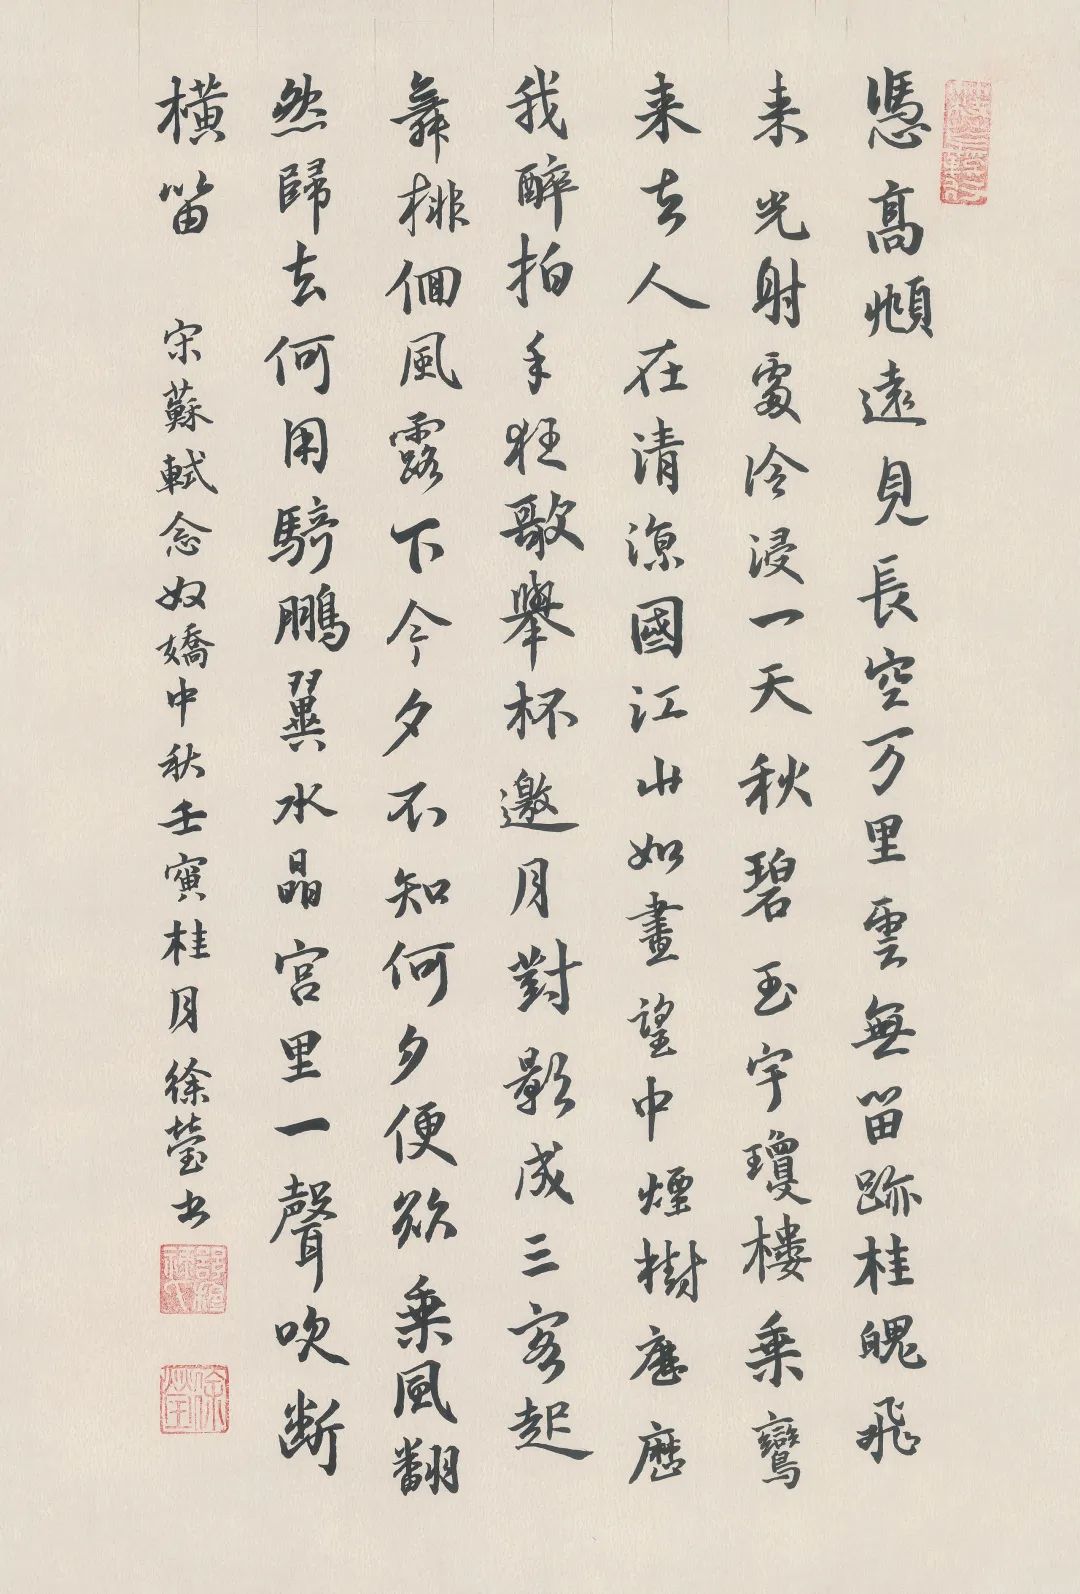 憑高頫遠見長空万里雲無留跡桂魄飛
来光射處冷浸一天秋碧玉宇瓊樓乗鸞
来去人在清涼國江山如畫望中煙樹歷歷
我醉拍手狂歌舉杯邀月對影成三客起
舞徘徊風露下今夕不知何夕便欲乗風翻
然歸去何用騎鵬翼水晶宮里一聲吹断
橫笛
宋蘇軾念奴嬌中秋壬寅桂月徐瑩书
徐瑩